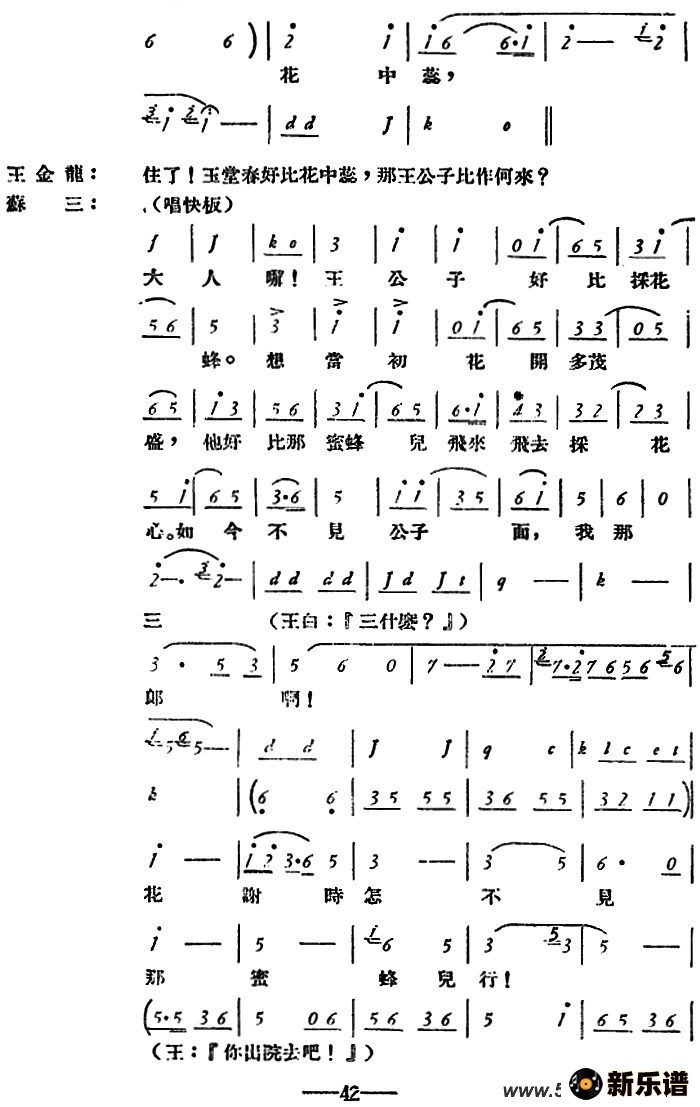 6 6 ) | 2 1 | 1 6 6·1 | 2 — 1 2 |
花 中 蕊，
3 1 2 1 — | d d J | k 0 ‖
王金龍： 住了！玉堂春好比花中蕊，那王公子比作何來？
蘇 三： （唱快板）
J | J | k o | 3 | 1 | 1 | 0 1 | 6 5 | 3 1 |
大 人 哪！ 王 公 子 好 比 採花
5 6 | 5 | 3 | 1 | 1 | 0 1 | 6 5 | 3 3 | 0 5 |
蜂。 想 當 初 花 開 多茂
6 5 | 1 3 | 5 6 | 3 1 | 6 5 | 6·1 | 4 3 | 3 2 | 2 3 |
盛， 他好 比那 蜜蜂 兒 飛來 飛去 採 花
5 1 | 6 5 | 3·6 | 5 | 1 1 | 3 5 | 6 1 | 5 | 6 | 0 |
心。如 今 不 見 公子 面， 我 那
2 — · 3 2 — | d d d d | J d J t | q — | k — |
三 （王白：『三什麽？』）
3 · 5 3 | 5 6 0 | 7 — 2 7 | 2 7·2 7 6 5 6 5 6 |
郎 啊！
1 5 6 5 — | d d | J J | q c | k l c e t |
k | ( 6 6 | 3 5 5 5 | 3 6 5 5 | 3 2 1 1 ) |
1 — | 1 2 3·6 5 | 3 — — | 3 5 | 6 · 0 |
花 謝 時 怎 不 見
1 — | 5 — | 1 6 5 | 3 5 3 | 5 — |
那 蜜 蜂 兒 行！
( 5·5 3 6 | 5 0 6 | 5 6 3 6 | 5 1 | 6 5 3 6 |
（王：『你出院去吧！』）
—42—
www.5
新乐谱